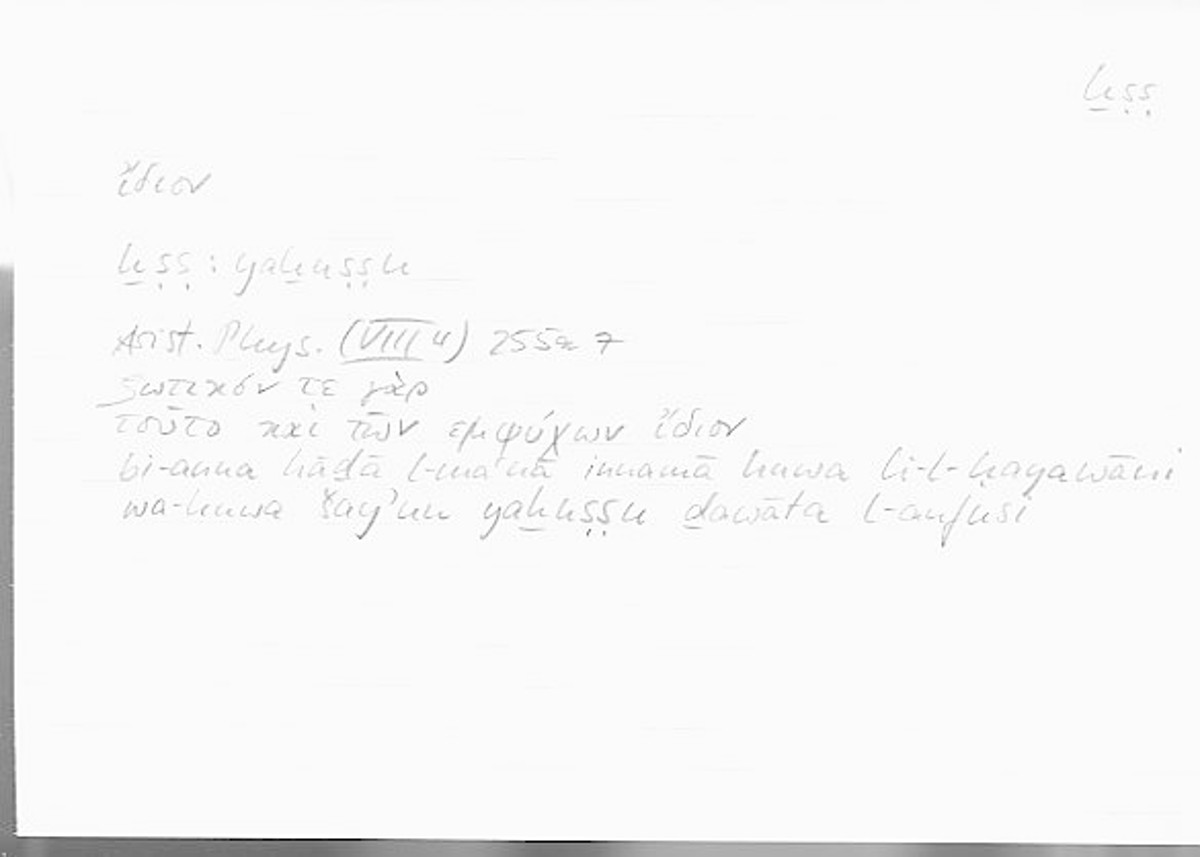 ḫṣṣ
ἴδιον
ḫṣṣ : yaḫuṣṣu
Arist. Phys. (VIII 4) 255a 7
ζωτικόν τε γὰρ
τοῦτο καὶ τῶν ἐμψύχων ἴδιον
bi-anna hāḏā l-maʿnā innamā huwa li-l-ḥayawāni
wa-huwa šayʾun yaḫuṣṣu ḏawāta l-anfusi